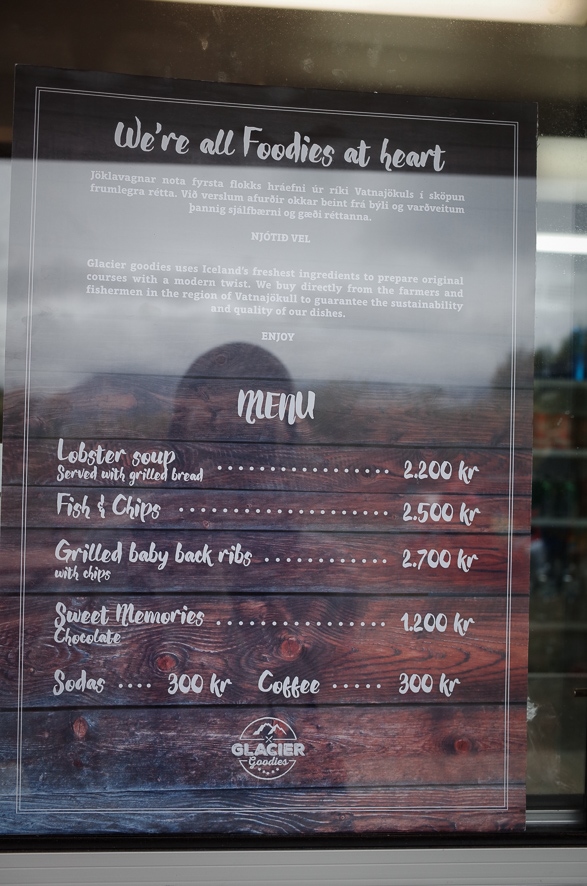 We're all Foodies at heart
Jöklavagnar nota fyrsta flokks hráefni úr ríki Vatnajökuls í sköpun
frumlegra rétta. Við verslum afurðir okkar beint frá býli og varðveitum
þannig sjálfbærni og gæði réttanna.
NJÓTIÐ VEL
Glacier goodies uses Iceland's freshest ingredients to prepare original
courses with a modern twist. We buy directly from the farmers and
fishermen in the region of Vatnajökull to guarantee the sustainability
and quality of our dishes.
ENJOY
MENU
Lobster soup ........................ 2.200 kr
Served with grilled bread
Fish & Chips ........................ 2.500 kr
Grilled baby back ribs ............ 2.700 kr
with chips
Sweet Memories .................... 1.200 kr
Chocolate
Sodas .... 300 kr Coffee ...... 300 kr
GLACIER
Goodies